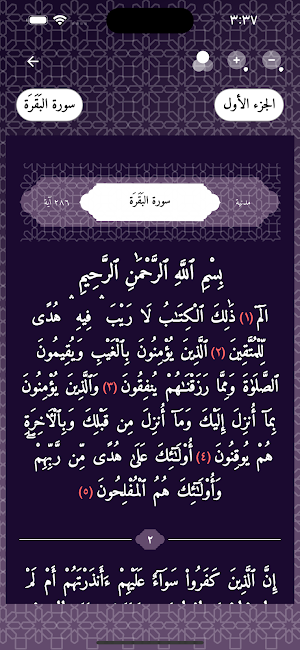 ٣:٣٧
الجزء الأول
سورة البَقَرَة
مدنية
سورة البَقَرَة
٢٨٦ آية
بِسْمِ ٱللَّهِ ٱلرَّحْمَٰنِ ٱلرَّحِيمِ
الٓمٓ (١) ذَٰلِكَ ٱلْكِتَٰبُ لَا رَيْبَ ۛ فِيهِ ۛ هُدًى
لِّلْمُتَّقِينَ (٢) ٱلَّذِينَ يُؤْمِنُونَ بِٱلْغَيْبِ وَيُقِيمُونَ
ٱلصَّلَوٰةَ وَمِمَّا رَزَقْنَٰهُمْ يُنفِقُونَ (٣) وَٱلَّذِينَ يُؤْمِنُونَ
بِمَآ أُنزِلَ إِلَيْكَ وَمَآ أُنزِلَ مِن قَبْلِكَ وَبِٱلْـَٔاخِرَةِ
هُمْ يُوقِنُونَ (٤) أُو۟لَٰٓئِكَ عَلَىٰ هُدًى مِّن رَّبِّهِمْ ۖ
وَأُو۟لَٰٓئِكَ هُمُ ٱلْمُفْلِحُونَ (٥)
٢
إِنَّ ٱلَّذِينَ كَفَرُوا۟ سَوَآءٌ عَلَيْهِمْ ءَأَنذَرْتَهُمْ أَمْ لَمْ